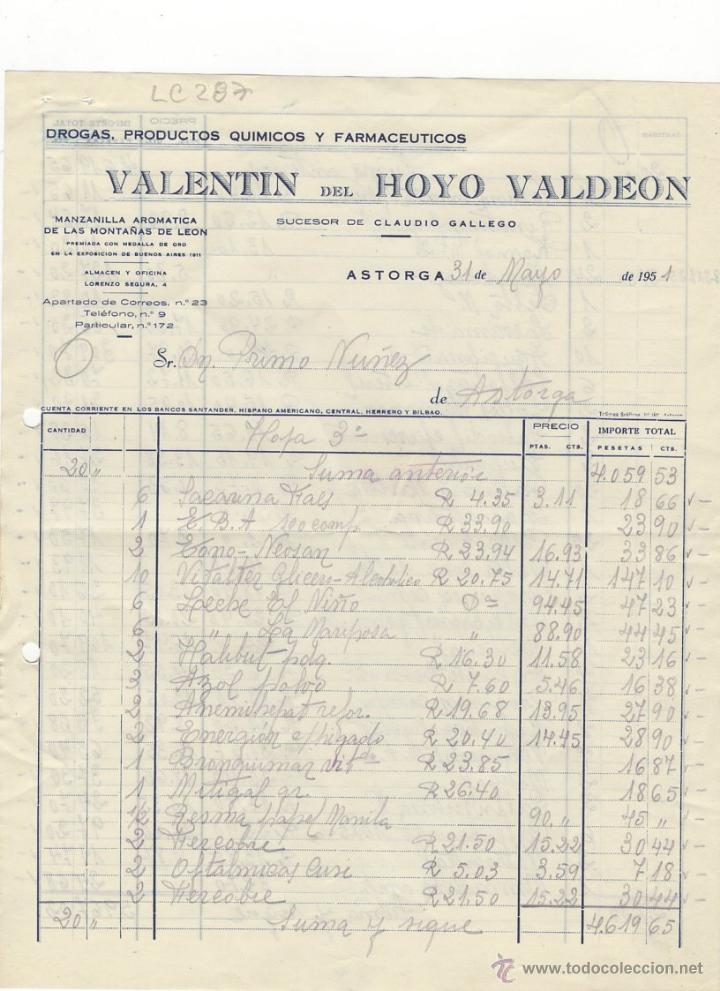 LC 287
DROGAS, PRODUCTOS QUIMICOS Y FARMACEUTICOS
VALENTIN DEL HOYO VALDEON
MANZANILLA AROMATICA
DE LAS MONTAÑAS DE LEON
PREMIADA CON MEDALLA DE ORO
EN LA EXPOSICION DE BUENOS AIRES 1911
ALMACEN Y OFICINA
LORENZO SEGURA, 4
Apartado de Correos, n.º 23
Teléfono, n.º 9
Particular, n.º 172
SUCESOR DE CLAUDIO GALLEGO
ASTORGA 31 de Mayo de 1951
6 Sr. Dn Primo Nuñez
de Astorga
CUENTA CORRIENTE EN LOS BANCOS SANTANDER, HISPANO AMERICANO, CENTRAL, HERRERO Y BILBAO.
CANTIDAD PRECIO IMPORTE TOTAL
PTAS. CTS. PESETAS CTS.
Hoja 3ª
20 " Suma anterior 4.059 53
6 Sacarina Faes R 4.35 3.11 18 66
1 E.B.A 100 comp. R 33.90 23 90
2 Tono-Neosan R 23.94 16.93 33 86
10 Vitalter Glicero-Alcoholico R 20.75 14.71 147 10
6 Leche El Niño 94.45 47 23
6 " La Mariposa " 88.90 44 45
2 Halibut pdg. R 16.30 11.58 23 16
3 Azol polvo R 7.60 5.46 16 38
2 Anemisepat refor. R 19.68 13.95 27 90
2 Energion hígado R 20.40 14.45 28 90
1 Bronquimar R 23.85 16 87
1 Mitigal gr. R 26.40 18 65
1/2 Resma papel Manila 90. " 45 "
2 Fercobre R 21.50 15.22 30 44
2 Oftalmicas Cusi R 5.03 3.59 7 18
2 Fercobre R 21.50 15.22 30 44
20 " Suma y sigue 4.619 65
www.todocoleccion.net